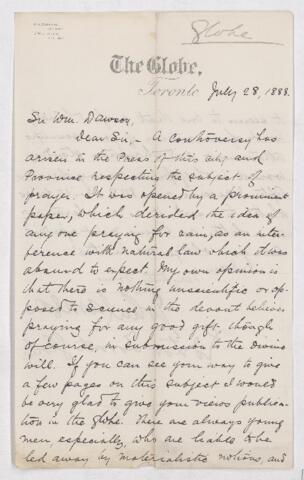 Globe
The Globe,
Toronto July 28, 1888.
Sir Wm. Dawson,
Dear Sir, - A controversy has
arisen in the Press of this city and
Province respecting the subject of
prayer. It was opened by a prominent
paper, which derided the idea of
any one praying for rain, as an inter-
ference with natural law which it was
absurd to expect. My own opinion is
that there is nothing unscientific or op-
posed to science in the devout believer
praying for any good gift, though
of course, in submission to the divine
will. If you can see your way to give
a few pages on this subject I would
be very glad to give your views publica-
tion in the Globe. There are always young
men, especially, who are liable to be
led away by materialistic notions, and